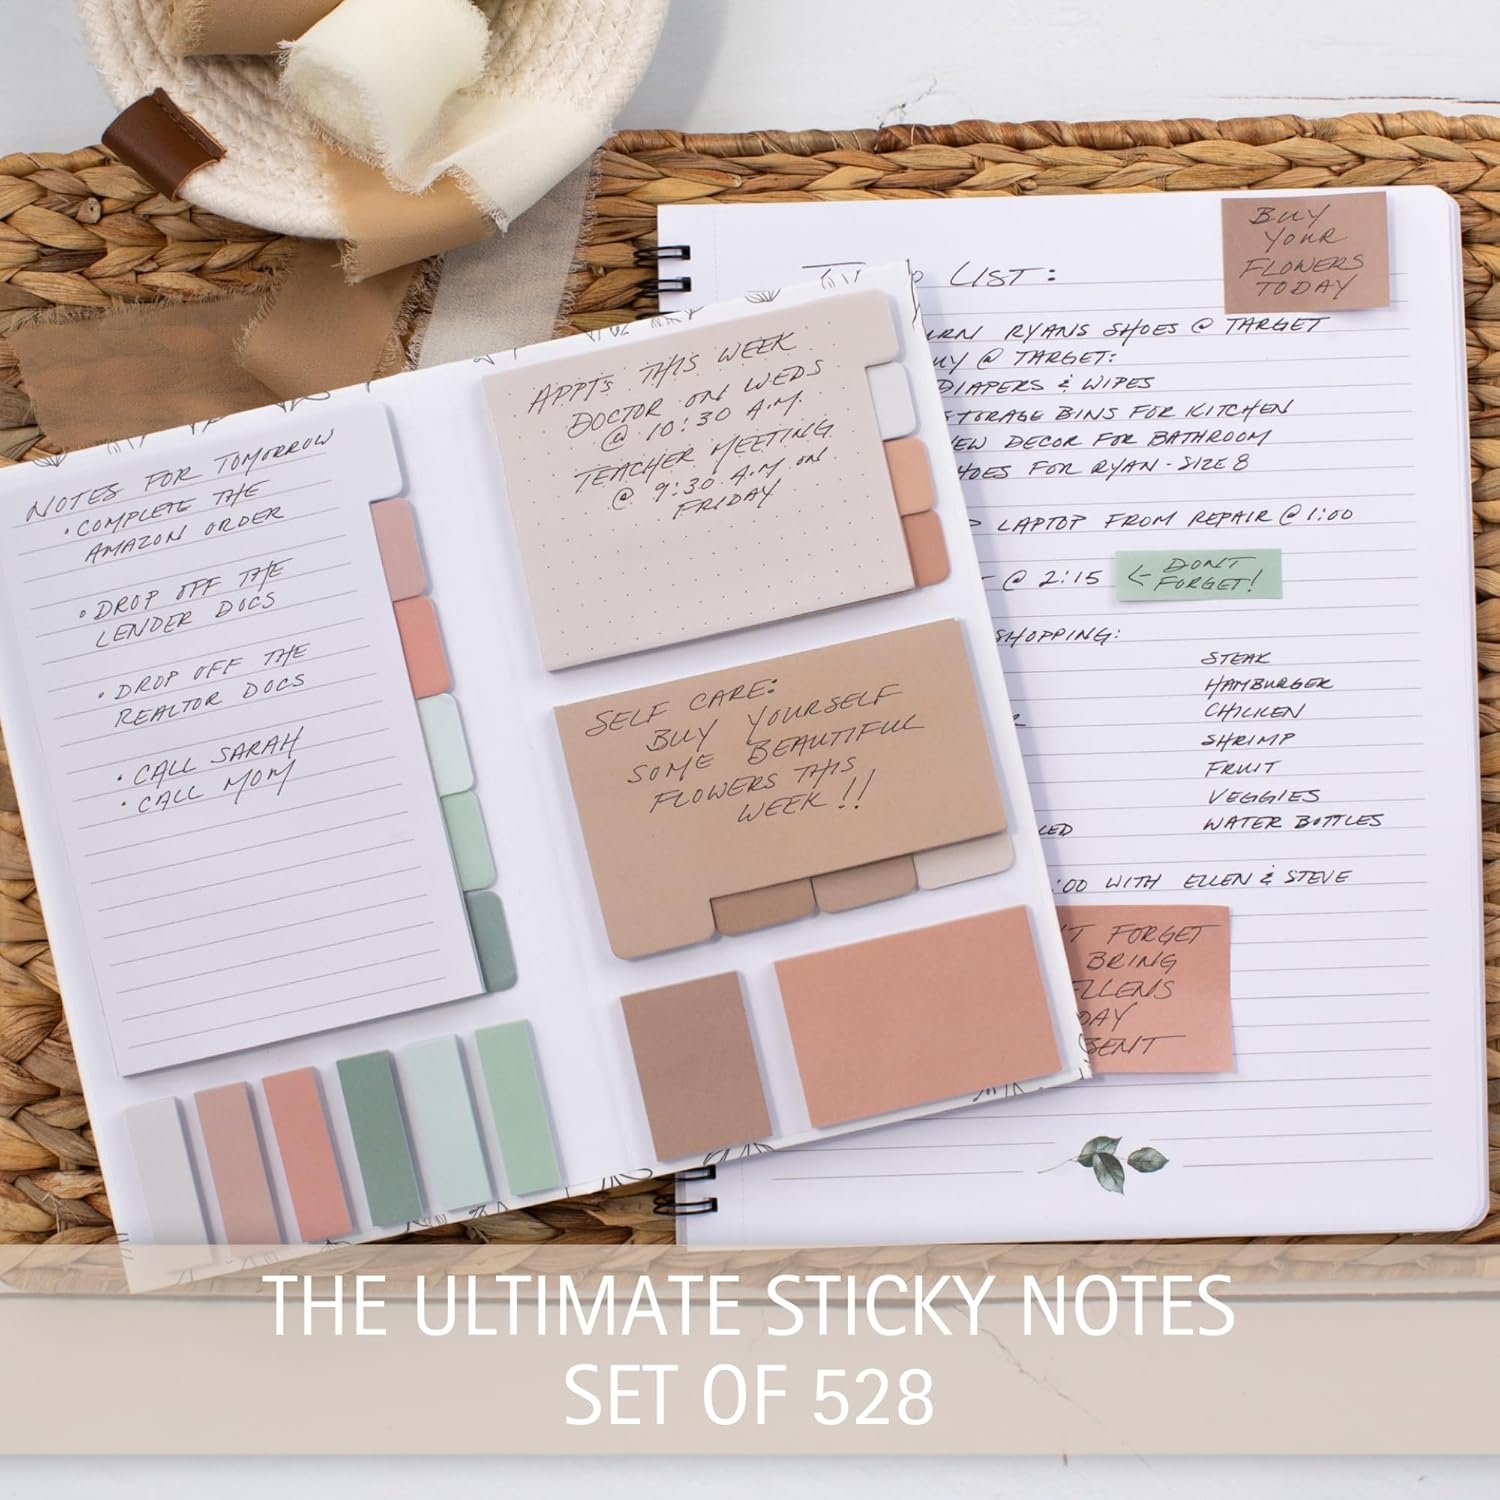 NOTES FOR TOMORROW
• COMPLETE THE
AMAZON ORDER
• DROP OFF THE
LENDER DOCS
• DROP OFF THE
REALTOR DOCS
• CALL SARAH
• CALL MOM
APPTS THIS WEEK
DOCTOR ON WEDS
@ 10:30 A.M.
TEACHER MEETING
@ 9:30 A.M ON
FRIDAY
SELF CARE:
BUY YOURSELF
SOME BEAUTIFUL
FLOWERS THIS
WEEK!!
LIST:
BUY
YOUR
FLOWERS
TODAY
RYANS SHOES @ TARGET
@ TARGET:
DIAPERS & WIPES
STORAGE BINS FOR KITCHEN
DECOR FOR BATHROOM
FOR RYAN - SIZE 8
LAPTOP FROM REPAIR @ 1:00
@ 2:15
← DON'T
FORGET!
SHOPPING:
STEAK
HAMBURGER
CHICKEN
SHRIMP
FRUIT
VEGGIES
WATER BOTTLES
:00 WITH ELLEN & STEVE
FORGET
BRING
ELLENS
THE ULTIMATE STICKY NOTES
SET OF 528